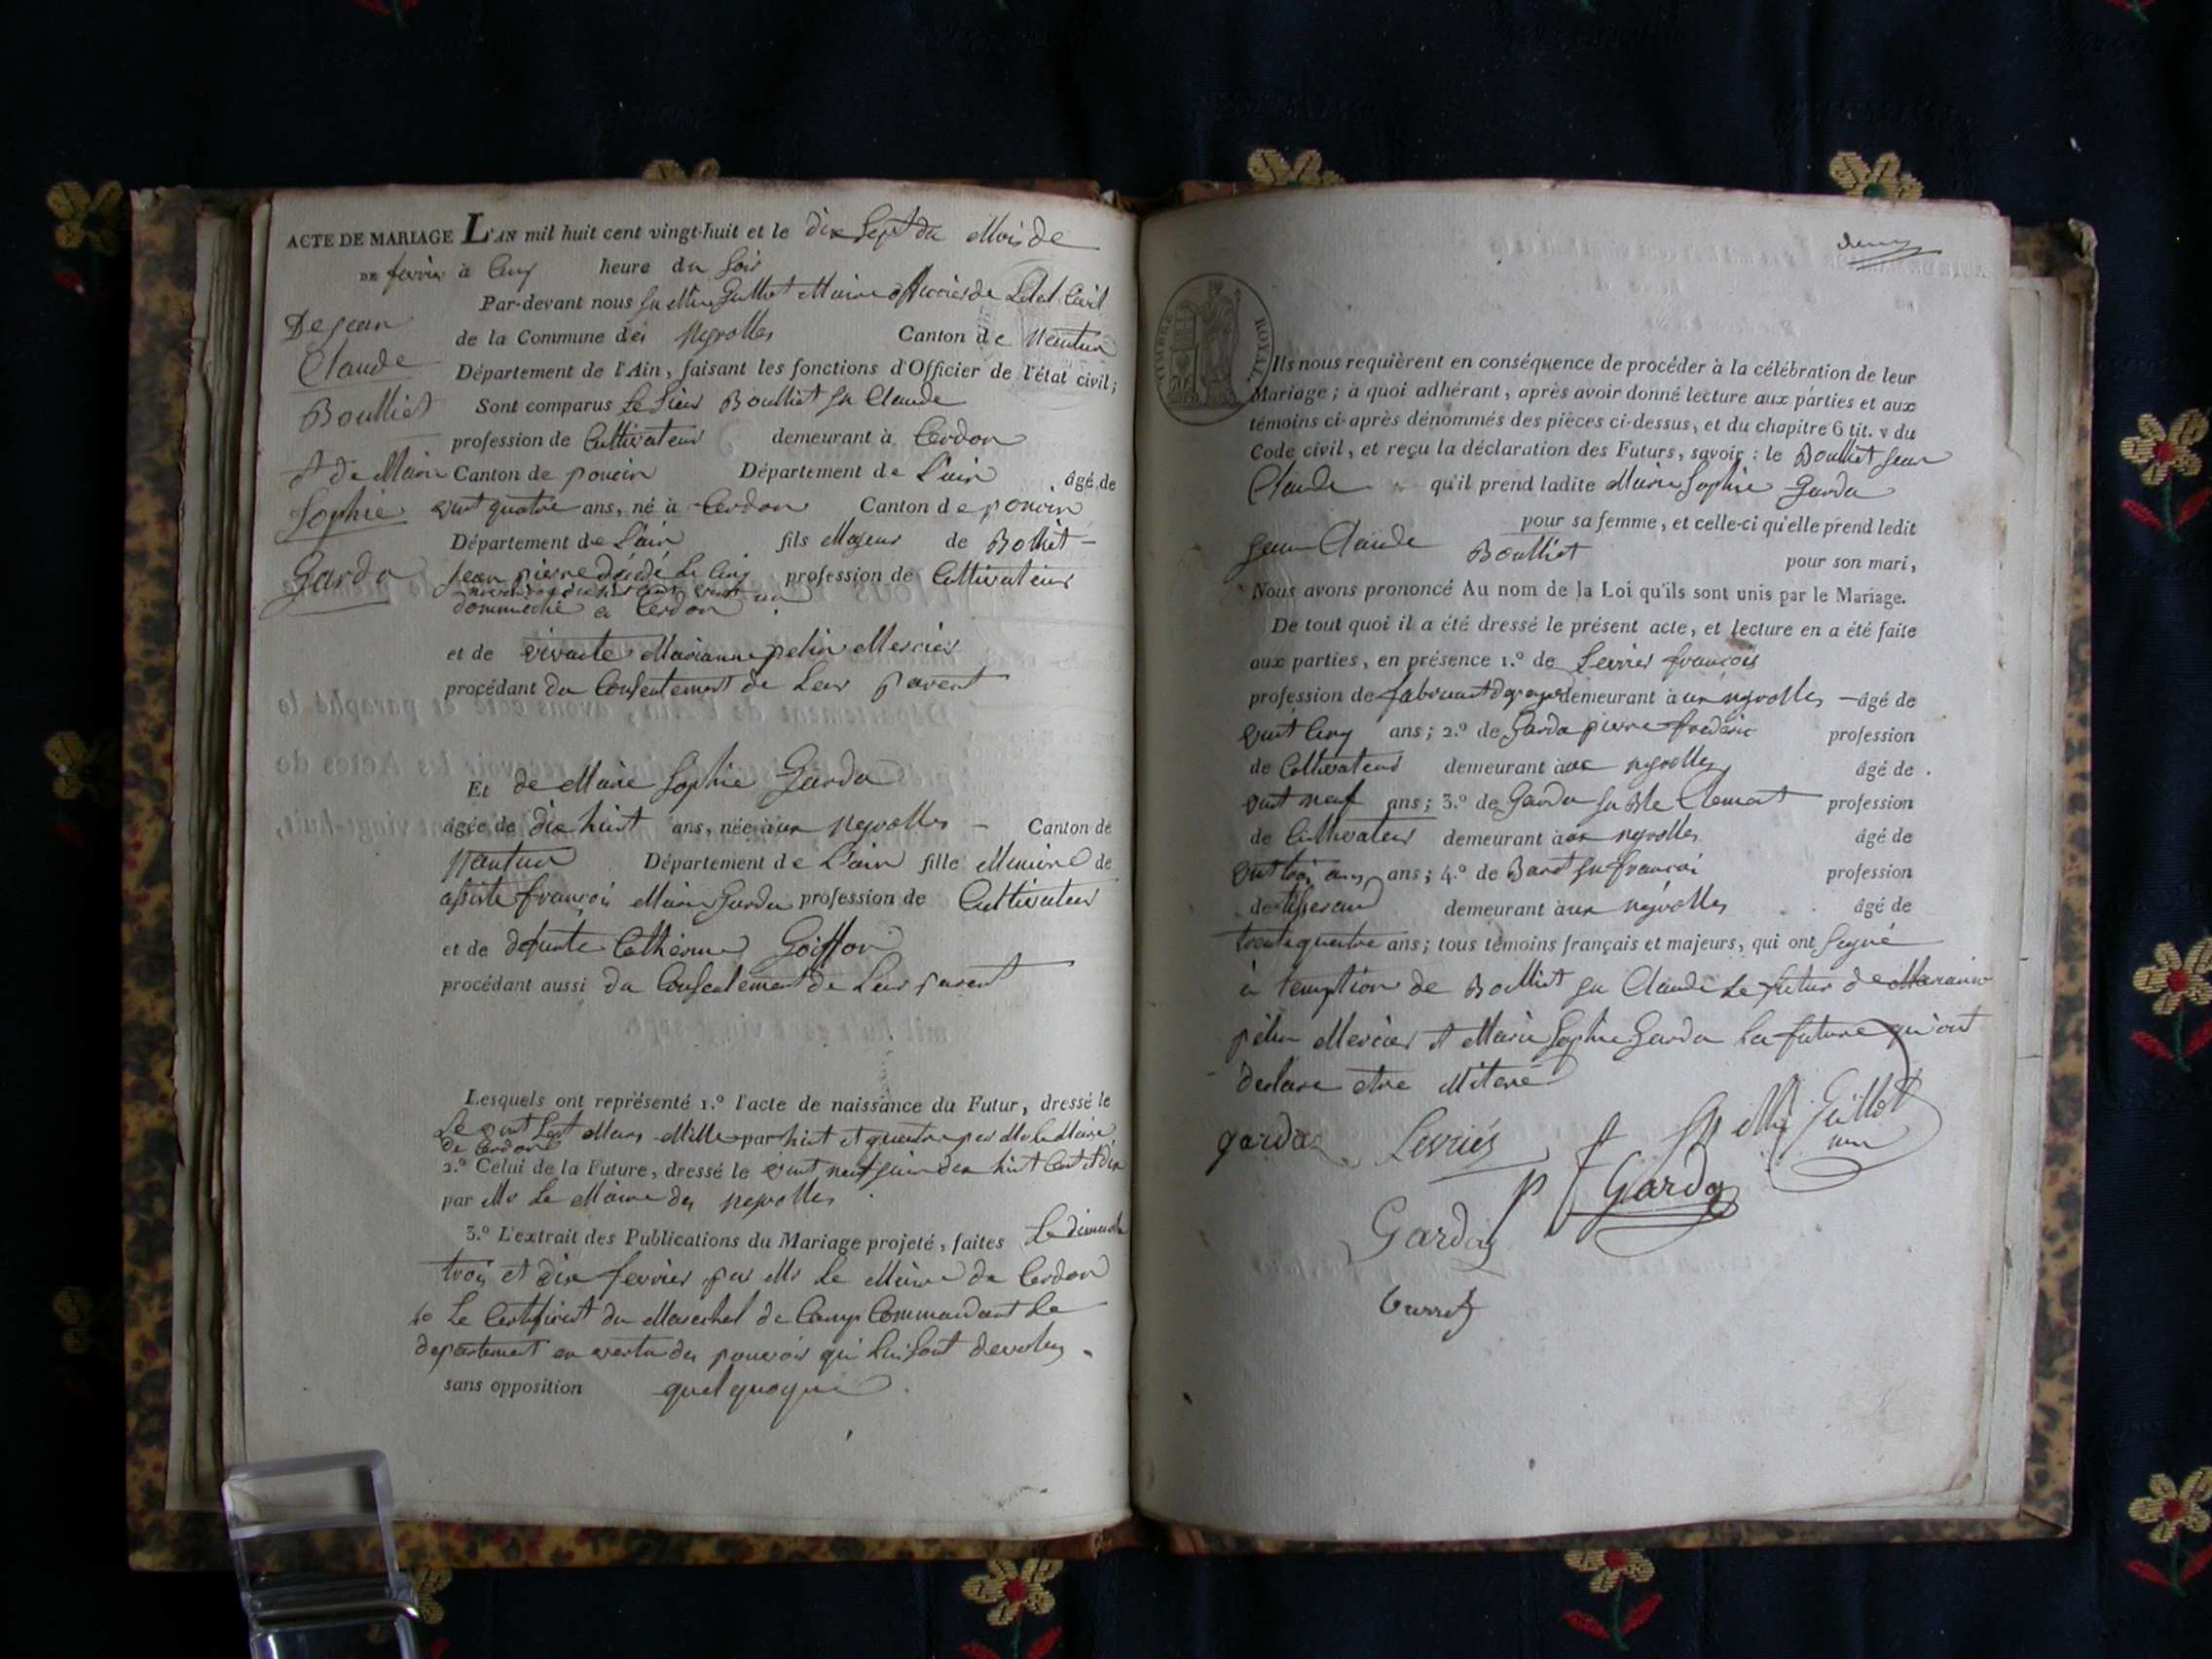 ACTE DE MARIAGE L'AN mil huit cent vingt-huit et le dix Sept du Mois de
DE fevrier à Cinq heure du Soir
Par-devant nous Guillot Maire officier de Létat Civil
de la Commune des neyrolles Canton de Nantua
Département de l'Ain, faisant les fonctions d'Officier de l'état civil;
De jean
Claude
Boulliet
et de Marie
Sophie
Garda
Sont comparus Le Sieur Boulliet jn Claude
profession de Cultivateur demeurant à Cerdon
Canton de poncin Département de L'ain âgé de
vint quatre ans, né à Cerdon Canton de poncin
Département de L'ain fils Majeur de Bolliet
jean pierre décédé Le Cinq profession de Cultivateur
dommicilié a Cerdon
et de vivante Marianne pelin Mercier
procédant du Consentement de Leur parent
Et de Marie Sophie Garda
âgée de dix huit ans, née à aux neyrolles Canton de
Nantua Département de L'ain fille Mineure de
françois Marie Garda profession de Cultivateur
et de defunte Catherine Goiffon
procédant aussi du Consentement de Leur parent
Lesquels ont représenté 1.º l'acte de naissance du Futur, dressé le
Le vint Sept Mars Mille huit et quatre par Mr le Maire
de Cerdon
2.º Celui de la Future, dressé le vint neuf huit Cent et dix
par Mr Le Maire des neyrolles
3.º L'extrait des Publications du Mariage projeté, faites Le dimanche
trois et dix fevrier par Mr Le Maire de Cerdon
4º Le Certificat du Marechal de Camp Commandant Le
departement en vertu des pouvoir qui Lui sont devolus
sans opposition quelquoque
Deux
TIMBRE ROYAL
Ils nous requièrent en conséquence de procéder à la célébration de leur
Mariage; à quoi adhérant, après avoir donné lecture aux parties et aux
témoins ci-après dénommés des pièces ci-dessus, et du chapitre 6 tit. v du
Code civil, et reçu la déclaration des Futurs, savoir: le Boulliet jean
Claude qu'il prend ladite Marie Sophie Garda
pour sa femme, et celle-ci qu'elle prend ledit
jean Claude Boulliet pour son mari,
Nous avons prononcé Au nom de la Loi qu'ils sont unis par le Mariage.
De tout quoi il a été dressé le présent acte, et lecture en a été faite
aux parties, en présence 1.º de Levrier françois
profession de fabricant demeurant à ux neyrolles âgé de
vint Cinq ans; 2.º de Garda pierre frederic profession
de Cultivateur demeurant à aux neyrolles âgé de
vint neuf ans; 3.º de Garda jn Bte Clement profession
de Cultivateur demeurant à aux neyrolles âgé de
vint trois ans, ans; 4.º de jn françoi profession
de tisserand demeurant à aux neyrolles âgé de
trente quatre ans; tous témoins français et majeurs, qui ont Signé
à l'emption de Boulliet jn Claude Le futur de Marianne
pelin Mercier et Marie Sophie Garda La future qu'ont
declare etre illiteré
garda Levriés Guillot
p f Garda
Garda